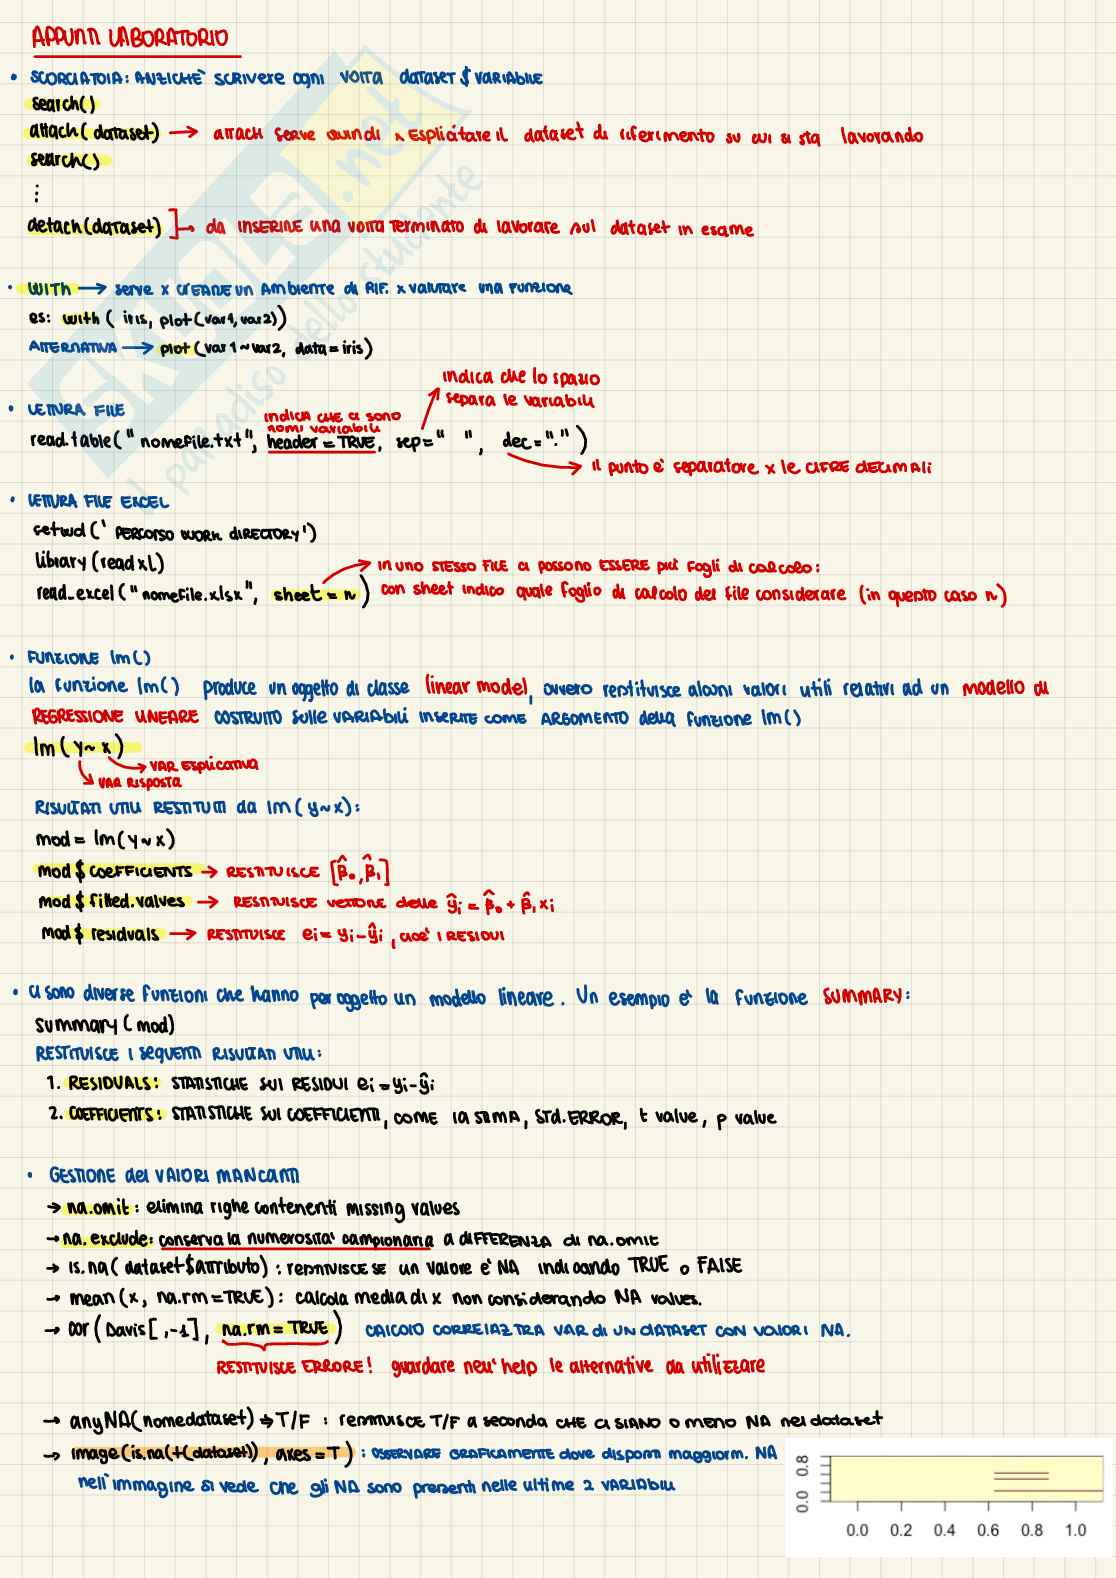 APPUNTI LABORATORIO
• SCORCIATOIA: ANZICHÈ SCRIVERE ogni VOLTA dataset $ VARIABILE
search()
attach(dataset) → attach serve quindi x Esplicitare il dataset di riferimento su cui si sta lavorando
search()
⋮
detach(dataset) ] → da INSERIRE una volta Terminato di lavorare sul dataset in esame
• WITH → serve x CREARE un Ambiente di RIF. x valutare una funzione
es: with( iris, plot(var1, var2))
ALTERNATIVA → plot(var1~var2, data=iris)
indica che lo spazio
separa le variabili
• LETTURA FILE
indica che ci sono
nomi variabili
read.table("nomefile.txt", header=TRUE, sep=" ", dec=".")
→ il punto è separatore x le CIFRE DECIMALI
• LETTURA FILE EXCEL
setwd('PERCORSO WORK DIRECTORY')
library(readxl)
→ in uno STESSO FILE ci possono ESSERE più fogli di calcolo:
read_excel("nomefile.xlsx", sheet = n) con sheet indico quale foglio di calcolo del file considerare (in questo caso n)
• FUNZIONE lm()
la funzione lm() produce un oggetto di classe linear model, ovvero restituisce alcuni valori utili relativi ad un modello di
REGRESSIONE LINEARE COSTRUITO sulle VARIABILI INSERITE COME ARGOMENTO della funzione lm()
lm(y~x)
→ VAR Esplicativa
→ VAR RISPOSTA
RISULTATI UTILI RESTITUITI da lm(y~x):
mod = lm(y~x)
mod $ COEFFICIENTS → RESTITUISCE [β̂₀, β̂₁]
mod $ fitted.values → RESTITUISCE VETTORE delle ŷi = β̂₀ + β̂₁xi
mod $ residuals → RESTITUISCE ei = yi-ŷi, cioè i RESIDUI
• Ci sono diverse funzioni che hanno per oggetto un modello lineare. Un esempio è la funzione SUMMARY:
summary(mod)
RESTITUISCE i seguenti RISULTATI UTILI:
1. RESIDUALS: STATISTICHE SUI RESIDUI ei = yi-ŷi
2. COEFFICIENTS: STATISTICHE SUI COEFFICIENTI, COME la STIMA, Std.ERROR, t value, p value
• GESTIONE dei VALORI MANCANTI
→ na.omit: elimina righe contenenti missing values
→ na.exclude: conserva la numerosità campionaria a DIFFERENZA di na.omit
→ is.na(dataset$attributo): restituisce se un valore è NA indicando TRUE o FALSE
→ mean(x, na.rm=TRUE): calcola media di x non considerando NA values.
→ cor(Davis[,-1], na.rm=TRUE) CALCOLO CORRELAZ TRA VAR di UN DATASET CON VALORI NA.
RESTITUISCE ERRORE! guardare nell'help le alternative da utilizzare
→ anyNA(nomedataset) ⇒ T/F : restituisce T/F a seconda CHE CI SIANO O meno NA nel dataset
→ image(is.na(t(dataset)), axes=T) : OSSERVARE GRAFICAMENTE dove disponi maggiorm. NA
nell'immagine si vede che gli NA sono presenti nelle ultime 2 VARIABILI
0.0 0.8
0.0 0.2 0.4 0.6 0.8 1.0
SKUOLA.net
il paradiso dello studente